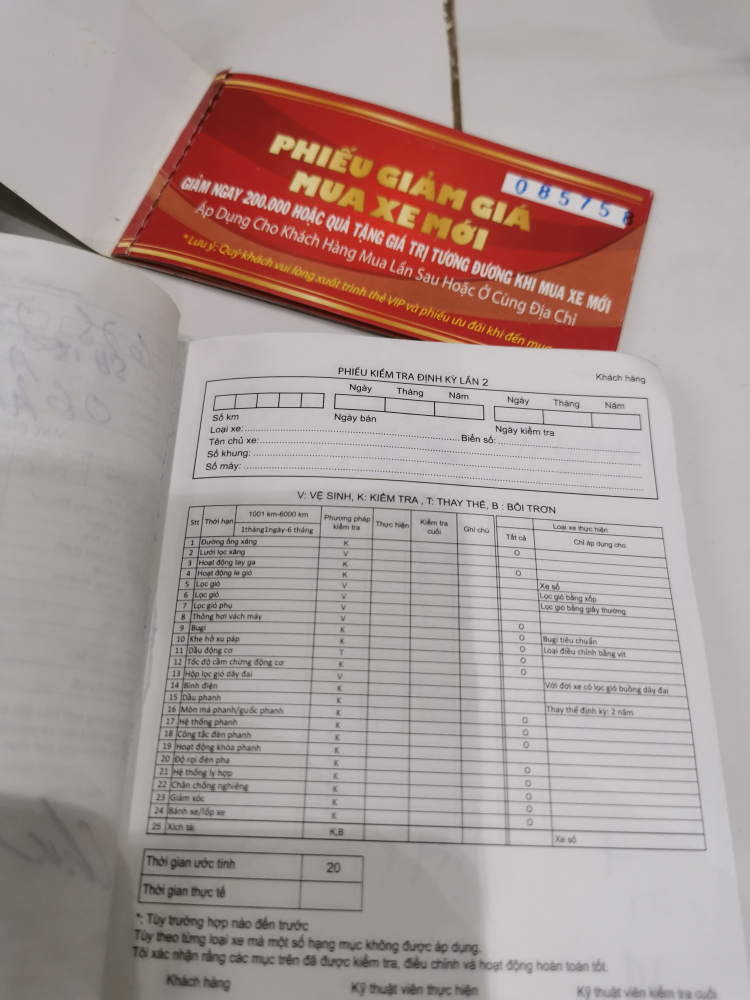 PHIẾU GIẢM GIÁ
MUA XE MỚI
085758
GIẢM NGAY 200.000 HOẶC QUÀ TẶNG GIÁ TRỊ TƯƠNG ĐƯƠNG KHI MUA XE MỚI
Áp Dụng Cho Khách Hàng Mua Lần Sau Hoặc Ở Cùng Địa Chỉ
* Lưu ý: Quý khách vui lòng xuất trình thẻ VIP và phiếu ưu đãi khi đến mua
PHIẾU KIỂM TRA ĐỊNH KỲ LẦN 2
Khách hàng
Ngày Tháng Năm Ngày Tháng Năm
Số km Ngày bán Ngày kiểm tra
Loại xe: Biển số:
Tên chủ xe:
Số khung:
Số máy:
V: VỆ SINH, K: KIỂM TRA , T: THAY THẾ, B : BÔI TRƠN
Stt Thời hạn 1001 km-6000 km Phương pháp kiểm tra Thực hiện Kiểm tra cuối Ghi chú Loại xe thực hiện
1tháng1ngày-6 tháng Tất cả Chỉ áp dụng cho
1 Đường ống xăng K
2 Lưới lọc xăng V O
3 Hoạt động tay ga K
4 Hoạt động le gió K O
5 Lọc gió V Xe số
6 Lọc gió V Lọc gió bằng xốp
7 Lọc gió phụ V Lọc gió bằng giấy thường
8 Thông hơi vách máy V
9 Bugi K O
10 Khe hở xu páp K O Bugi tiêu chuẩn
11 Dầu động cơ T O Loại điều chỉnh bằng vít
12 Tốc độ cầm chừng động cơ K O
13 Hộp lọc gió dây đai V O
14 Bình điện K Với đời xe có lọc gió buồng dây đai
15 Dầu phanh K
16 Mòn má phanh/guốc phanh K Thay thế định kỳ: 2 năm
17 Hệ thống phanh K O
18 Công tắc đèn phanh K O
19 Hoạt động khóa phanh K O
20 Độ rọi đèn pha K
21 Hệ thống ly hợp K O
22 Chân chống nghiêng K O
23 Giảm xóc K O
24 Bánh xe/lốp xe K O
25 Xích tải K,B Xe số
Thời gian ước tính 20
Thời gian thực tế
*: Tùy trường hợp nào đến trước
Tùy theo từng loại xe mà một số hạng mục không được áp dụng.
Tôi xác nhận rằng các mục trên đã được kiểm tra, điều chỉnh và hoạt động hoàn toàn tốt.
Khách hàng Kỹ thuật viên thực hiện Kỹ thuật viên kiểm tra cuối